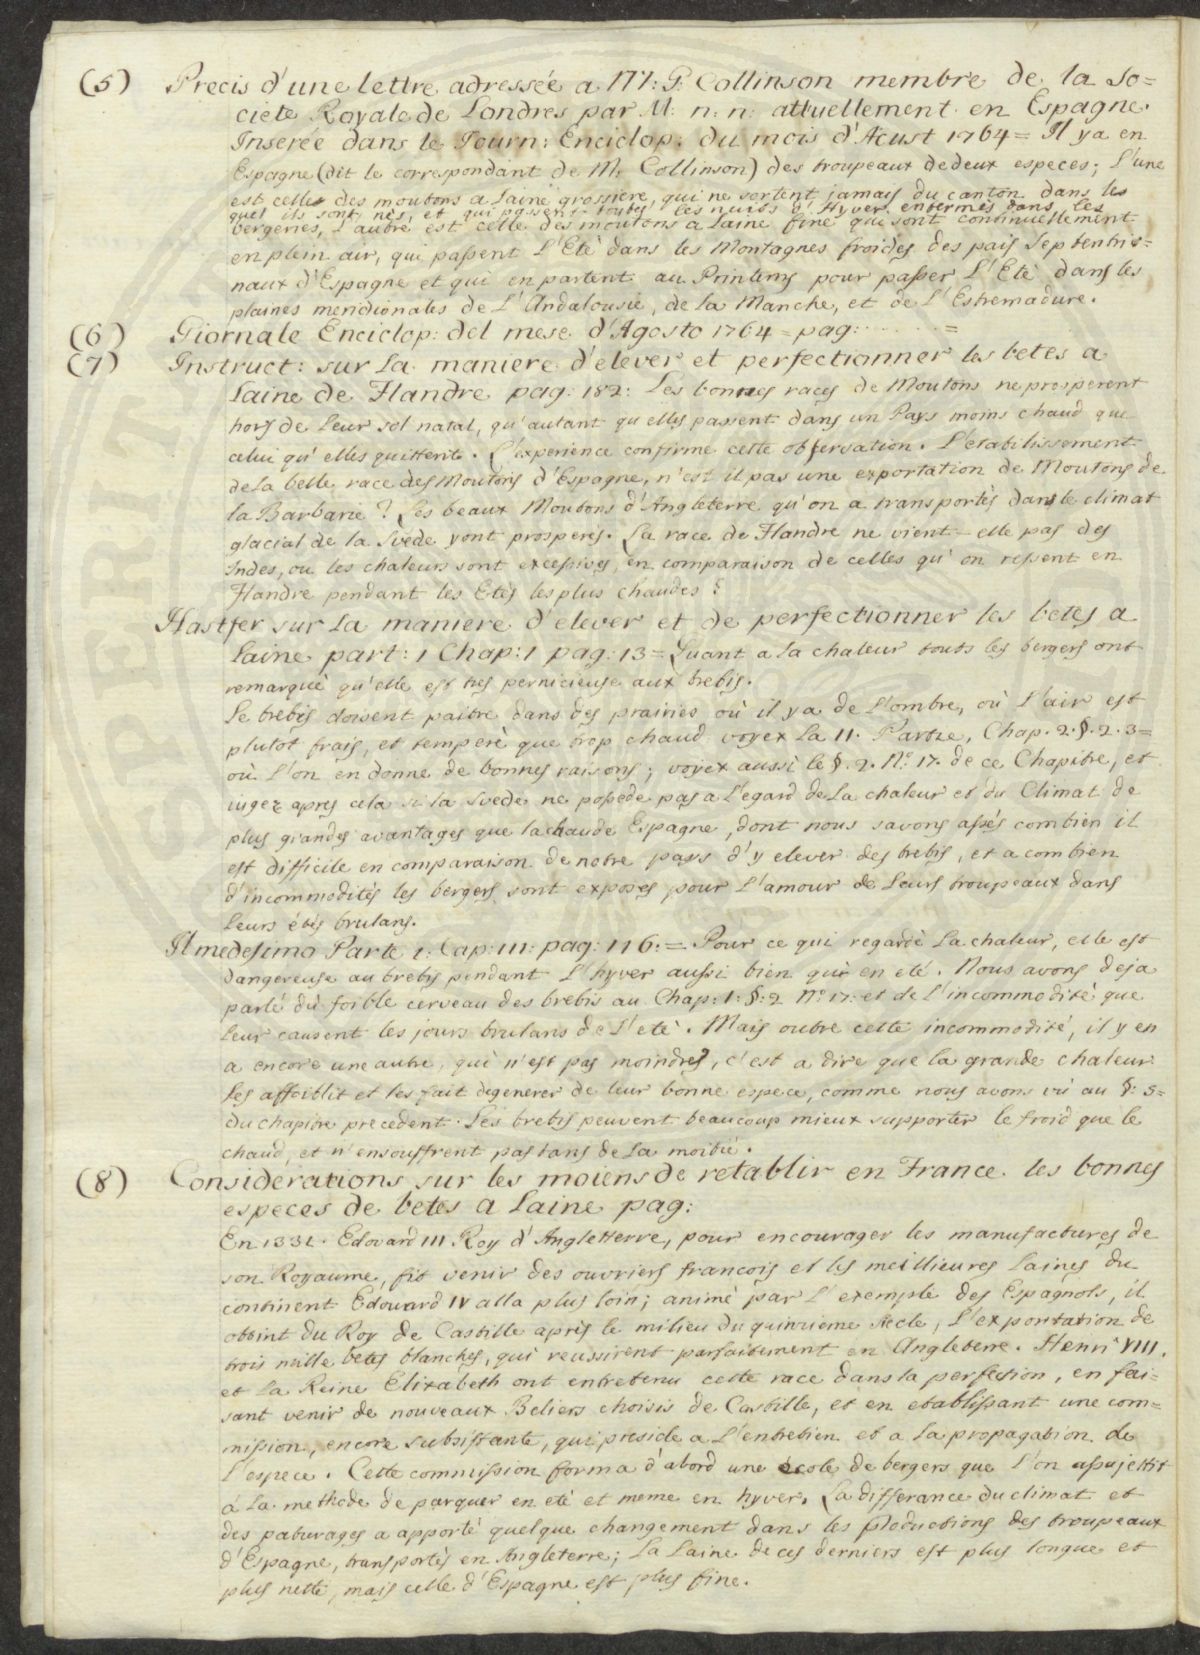 (5) Precis d'une lettre adressée a M: P: Collinson membre de la So=
cieté Royale de Londres par M: n: n: attuellement en Espagne.
Inserée dans le Journ: Enciclop: du mois d'Acust 1764 = Il y a en
Espagne (dit le correspondant de M. Collinson) des troupeaux de deux especes; L'une
est celle des moutons a Laine grossiere, qui ne sortent jamais du canton dans les
quel ils sont nés, et qui passent toutes les nuits d'Hyver enfermés dans les
bergeries, L'autre est celle des moutons a Laine fine qui sont continuellement
en plein air, qui passent L'Eté dans les Montagnes froides des pais Septentrio=
naux d'Espagne et qui en partent au Printems pour passer L'Eté dans les
plaines meridionales de L'Andalousie, de la Manche, et de L'Estremadure.
(6) Giornale Enciclop: del mese d'Agosto 1764 = pag: ....... =
(7) Instruct: sur La maniere d'elever et perfectionner les betes a
Laine de Flandre pag: 182: Les bonnes races de Moutons ne prosperent
hors de Leur sol natal, qu'autant qu'elles passent dans un Pays moins chaud que
celui qu'elles quittent. L'experience confirme cette observation. L'etabilissement
de La belle race des Moutons d'Espagne, n'est il pas une exportation de Moutons de
la Barbarie? Les beaux Moutons d'Angleterre qu'on a transportés dans le climat
glacial de la Svede y ont prosperés. La race de Flandre ne vient-elle pas des
Indes, ou les chaleurs sont excessives, en comparaison de celles qu'on ressent en
Flandre pendant les Etés les plus chaudes?
Hastfer sur La maniere d'elever et de perfectionner les betes a
Laine part: 1 Chap: 1 pag: 13 = Quant a la chaleur touts les bergers ont
remarqué qu'elle est tres pernicieuse aux brebis.
Le brebis doivent paitre dans des prairies où il y a de L'ombre, où L'air est
plutôt frais, et temperé que trop chaud voyez La II. Partie, Chap. 2. §. 2. 3=
où L'on en donne de bonnes raisons; voyez aussi le §. 2. N.º 17. de ce Chapitre, et
iugez apres cela si la Svede ne possede pas a L'egard de La chaleur et du Climat de
plus grandes avantages que la chaude Espagne, dont nous savons assés combien il
est difficile en comparaison de notre pays d'y elever des brebis, et a combien
d'incommodités les bergers sont exposés pour L'amour de Leurs troupeaux dans
Leurs étés brulans.
Il medesimo Parte 1: Cap: III: pag: 116: = Pour ce qui regarde La chaleur, elle est
dangereuse au brebis pendant L'hyver aussi bien qu'en eté. Nous avons deja
parlé du foible cerveau des brebis au Chap: 1: §: 2 N.º 17: et de L'incommodité que
leur causent les jours brulans de L'eté. Mais outre cette incommodité, il y en
a encore une autre, qui n'est pas moindre, c'est a dire que la grande chaleur
Les affoiblit et les fait degenerer de leur bonne espece, comme nous avons vù au §: 5=
du chapitre precedent. Les brebis peuvent beaucoup mieux supporter le froid que le
chaud, et n'en souffrent pas tans de La moitié.
(8) Considerations sur les moiens de retablir en France les bonnes
especes de betes a Laine pag:
En 1331. Edovard III Roy d'Angletterre, pour encourager les manufactures de
son Royaume, fit venir des ouvriers francois et les meillieures Laines du
continent Edouard IV alla plus loin; animé par L'exemple des Espagnols, il
obtint du Roy de Castille aprés le milieu du quinzieme siecle, L'exportation de
trois mille betes blanches, qui reussirent parfaitement en Angleterre. Henri VIII.
et La Reine Elizabeth ont entretenu cette race dans la perfection, en fai=
sant venir de nouveaux Beliers choisis de Castille, et en etablissant une com=
mission, encore subsistante, qui preside a L'entretien et a La propagation de
L'espece. Cette commission forma d'abord une école de bergers que L'on assujettit
à La methode de parquer en eté et meme en hyver. La differance du climat et
des paturages a apporté quelque changement dans les productions des troupeaux
d'Espagne, transportés en Angleterre; La Laine de ces derniers est plus longue et
plus nette, mais celle d'Espagne est plus fine.